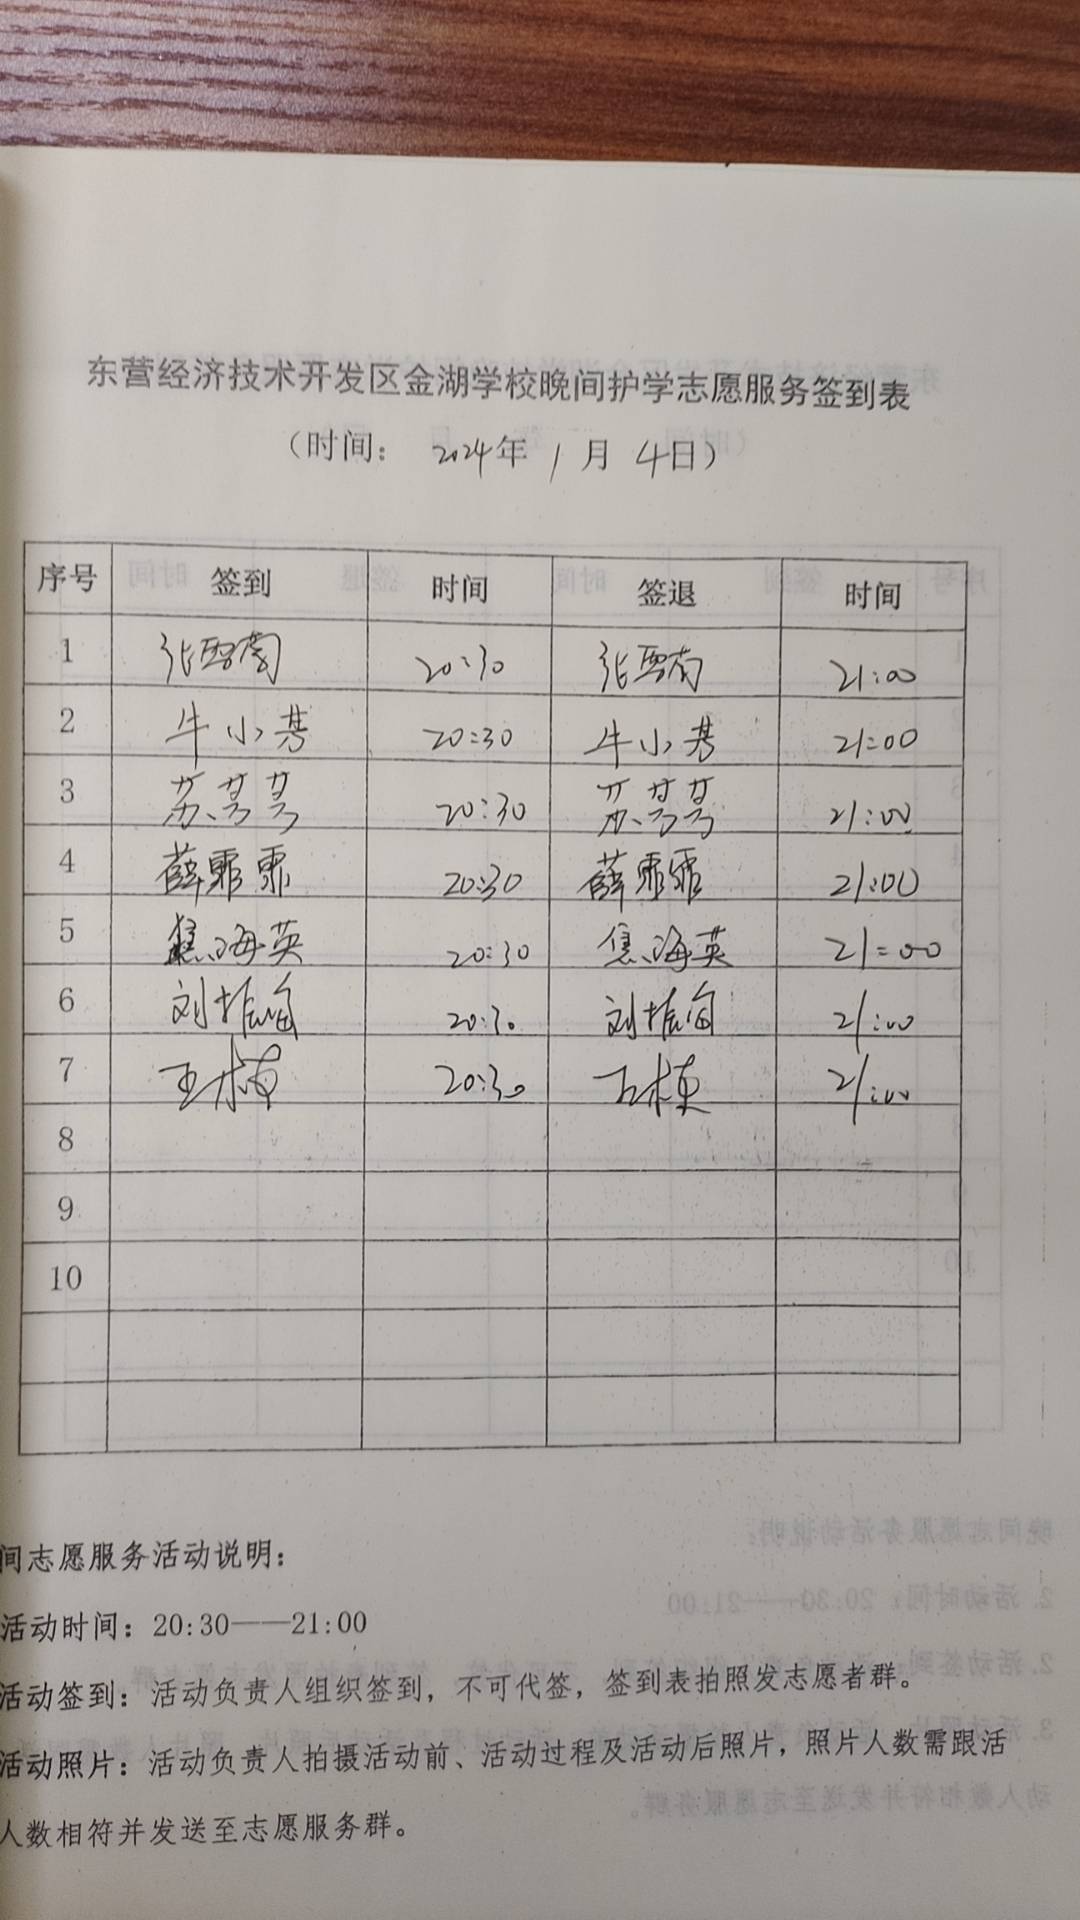 东营经济技术开发区金湖学校晚间护学志愿服务签到表
(时间: 2024年 1月 4日)
序号 签到 时间 签退 时间
1 张 20:30 张 21:00
2 牛小芳 20:30 牛小芳 21:00
3 苏芳芳 20:30 苏芳芳 21:00
4 薛霏霏 20:30 薛霏霏 21:00
5 焦海英 20:30 焦海英 21:00
6 刘振 20:30 刘振 21:00
7 王栋 20:30 王栋 21:00
8
9
10
间志愿服务活动说明:
活动时间: 20:30——21:00
活动签到: 活动负责人组织签到, 不可代签, 签到表拍照发志愿者群。
活动照片: 活动负责人拍摄活动前、活动过程及活动后照片, 照片人数需跟活
人数相符并发送至志愿服务群。